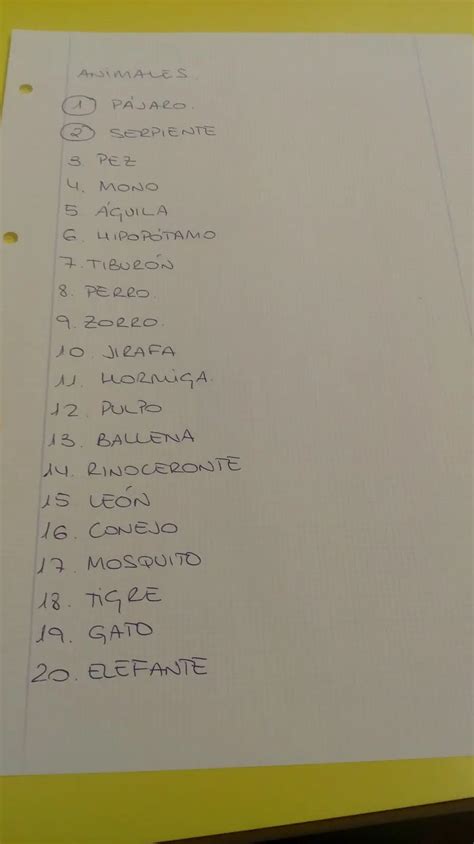 ANIMALES.
1 PÁJARO.
2 SERPIENTE
3. PEZ
4. MONO
5. ÁGUILA
6. HIPOPÓTAMO
7. TIBURÓN
8. PERRO.
9. ZORRO.
10. JIRAFA
11. HORMIGA.
12. PULPO
13. BALLENA
14. RINOCERONTE
15. LEÓN
16. CONEJO
17. MOSQUITO
18. TIGRE
19. GATO
20. ELEFANTE